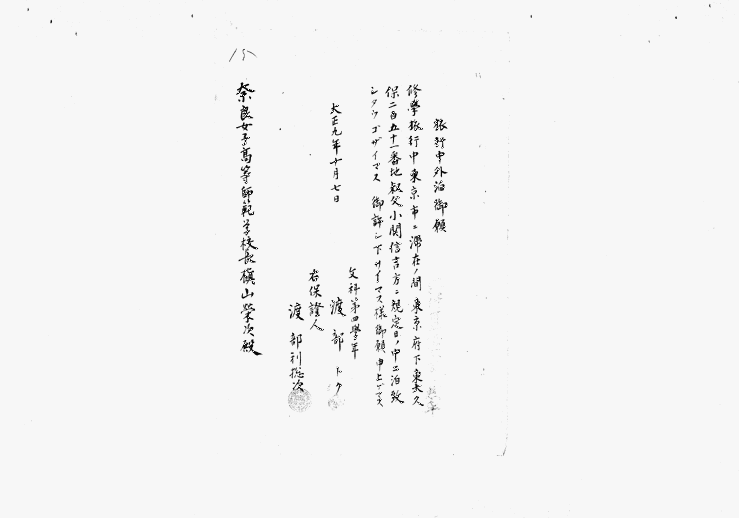 旅行中外泊御願
修學旅行中東京市ニ滞在ノ間東京府下東大久
保二百五十一番地叔父小関信吉方ニ規定日ノ中ニ泊致
シタウゴザイマス御許シ下サイマス様御願申上ゲマス
大正九年十月七日
文科第四學年
渡部トク
右保證人
渡部利惣次
奈良女子高等師範学校長槇山榮次殿